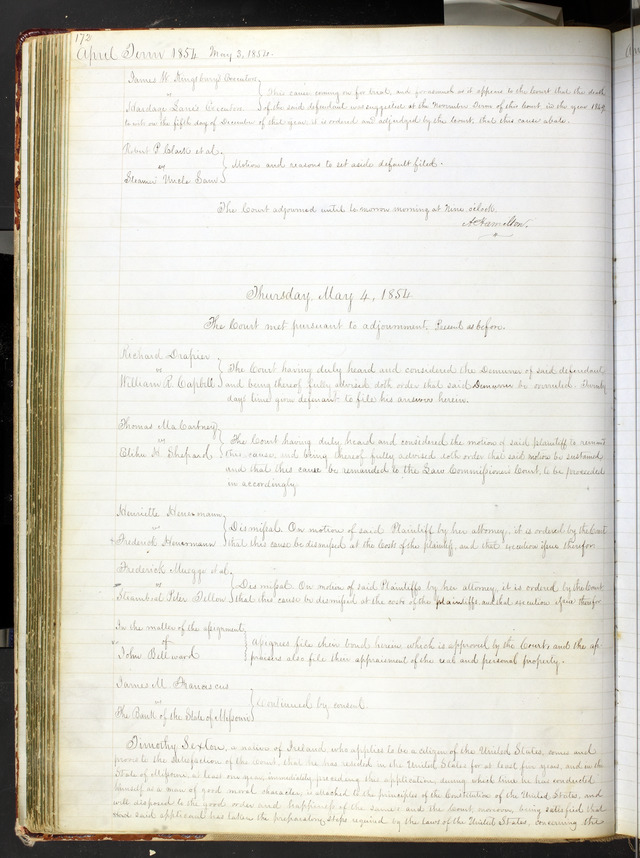 172
April Term 1854 May 3, 1854.
James W. Kingsbury's Executors
vs
This cause coming on for trial, and forasmuch as it appears to the Court that the death
Executor of the said defendant was suggested at the November Term of this Court, in the year 1849
to wit on the fifth day of December of that year, it is ordered and adjudged by the Court, that this cause abate.
Robert P. Clark et al.
vs
Motion and reasons to set aside default filed.
Steamer Uncle Sam
The Court adjourned until to morrow morning at nine o'clock
A. Hamilton.
Thursday, May 4, 1854.
The Court met pursuant to adjournment. Present as before.
Richard Draper
vs
The Court having duly heard and considered the Demurrer of said defendant
William R. and being thereof fully advised doth order that said Demurrer be overruled. Twenty
days time given defendant to file his answer herein.
Thomas McCartney
vs
The Court having duly heard and considered the motion of said plaintiff to remand
Elihu H. Shepard this cause, and being thereof fully advised doth order that said motion be sustained
and that this cause be remanded to the Law Commissioners Court, to be proceeded
in accordingly
Henriette Heuermann
vs
Dismissal. On motion of said Plaintiff by her attorney, it is ordered by the Court
Frederick Heuermann that this cause be dismissed at the costs of the plaintiff, and that execution issue therefor
Frederick et al.
vs
Dismissal. On motion of said Plaintiffs by her attorney, it is ordered by the Court
Steamboat Peter Tellon that this cause be dismissed at the costs of the plaintiffs and that execution issue therefor
In the matter of the assignment
of
assignees file their bond herein which is approved by the Court, and the ap
John praisers also file their appraisement of the real and personal property.
James M. Franciscus
vs
Continued by consent
The Bank of the State of Missouri
Timothy Sexton, a native of Ireland who applies to be a citizen of the United States, comes and
proves to the satisfaction of the Court, that he has resided in the United States for at least five years, and in the
State of Missouri at least one year, immediately preceding this application, during which time he has conducted
himself as a man of good moral character, is attached to the principles of the Constitution of the United States, and
well disposed to the good order and happiness of the same; and the Court, moreover, being satisfied that
said applicant has taken the preparatory steps required by the laws of the United States, concerning the